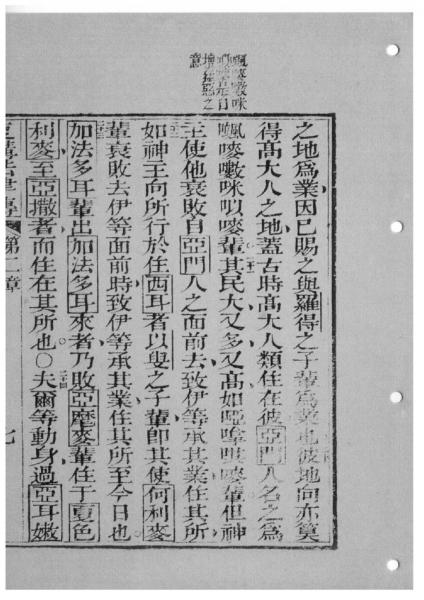 之地爲業因已賜之與羅得之子輩爲業也彼地向亦算
得高大人之地蓋古時高大人類住在彼亞門人名之爲
嘜咪嘜輩其民大又多又高如嘜輩但神
主使他衰敗自亞門人之面前去致伊等承其業住其所
如神主向所行於住西耳者以叟之子輩即其使何利麥
輩衰敗去伊等面前時致伊等承其業住其所至今日也
加法多耳輩出加法多耳來者乃敗亞麾麥輩住于夏色
利麥至亞撒者而住在其所也〇夫爾等動身過亞耳嫩
第二章
七